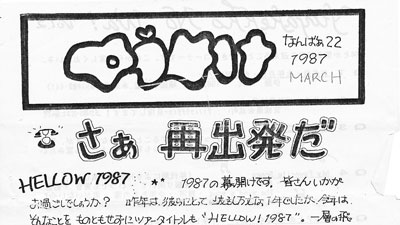 なんばぁ22
1987
MARCH
さぁ 再出発だ
HELLOW 1987 ・・・ ★★ 1987の幕開けです。皆さんいかが
お過ごしでしょうか? 昨年は、彼らにとって 1年でしたが、今年は、
そんなことを ものともせずにツアータイトルも "HELLOW! 1987"。一層の飛